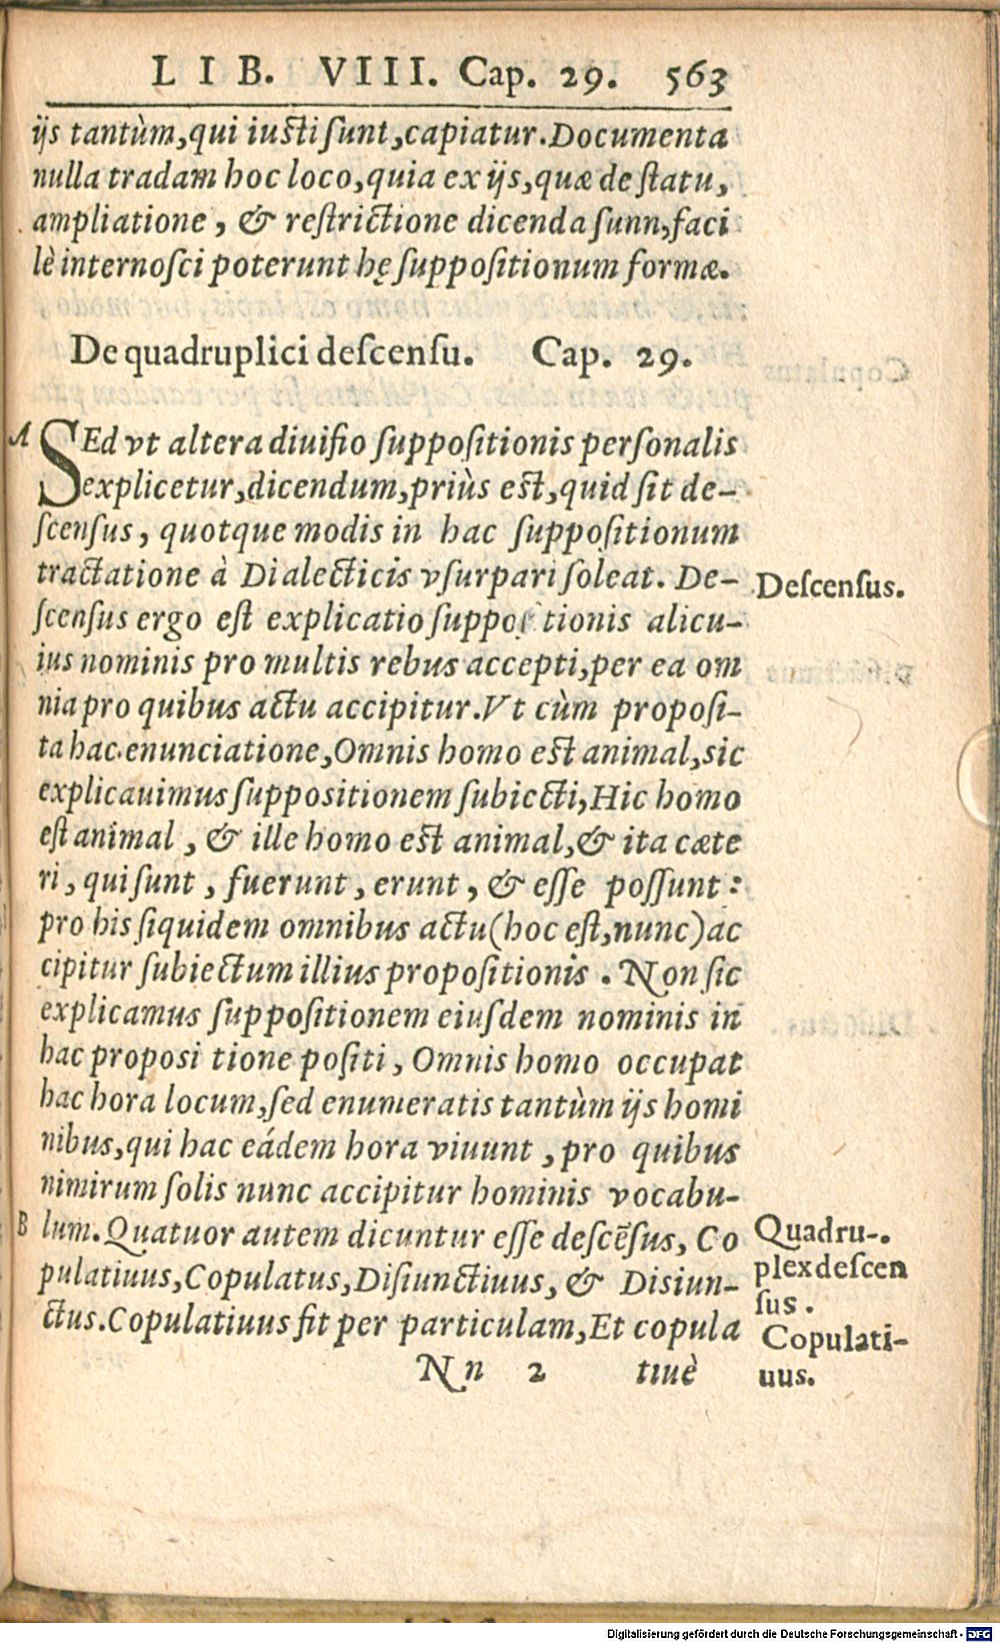 LIB. VIII. Cap. 29. 563
ijs tantùm,qui iusti sunt,capiatur.Documenta
nulla tradam hoc loco,quia ex ijs,quæ de statu,
ampliatione, & restrictione dicenda sunn,faci
lè internosci poterunt hę suppositionum formæ.
De quadruplici descensu. Cap. 29.
A SEd vt altera diuisio suppositionis personalis
explicetur,dicendum,priùs est,quid sit de-
scensus, quotque modis in hac suppositionum
tractatione à Dialecticis vsurpari soleat. De-
Descensus.
scensus ergo est explicatio suppositionis alicu-
ius nominis pro multis rebus accepti,per ea om
nia pro quibus actu accipitur.Vt cùm proposi-
ta hac enunciatione,Omnis homo est animal,sic
explicauimus suppositionem subiecti,Hic homo
est animal, & ille homo est animal,& ita cæte
ri, qui sunt, fuerunt, erunt, & esse possunt:
pro his siquidem omnibus actu(hoc est,nunc)ac
cipitur subiectum illius propositionis. Non sic
explicamus suppositionem eiusdem nominis in
hac proposi tione positi, Omnis homo occupat
hac hora locum,sed enumeratis tantùm ijs homi
nibus,qui hac eádem hora viuunt, pro quibus
nimirum solis nunc accipitur hominis vocabu-
B lum.Quatuor autem dicuntur esse descēsus, Co
pulatiuus,Copulatus,Disiunctiuus, & Disiun-
ctus.Copulatiuus fit per particulam,Et copula
Quadru-
plex descen
sus.
Copulati-
uus.
Nn 2 tiuè
Digitalisierung gefördert durch die Deutsche Forschungsgemeinschaft - DFG